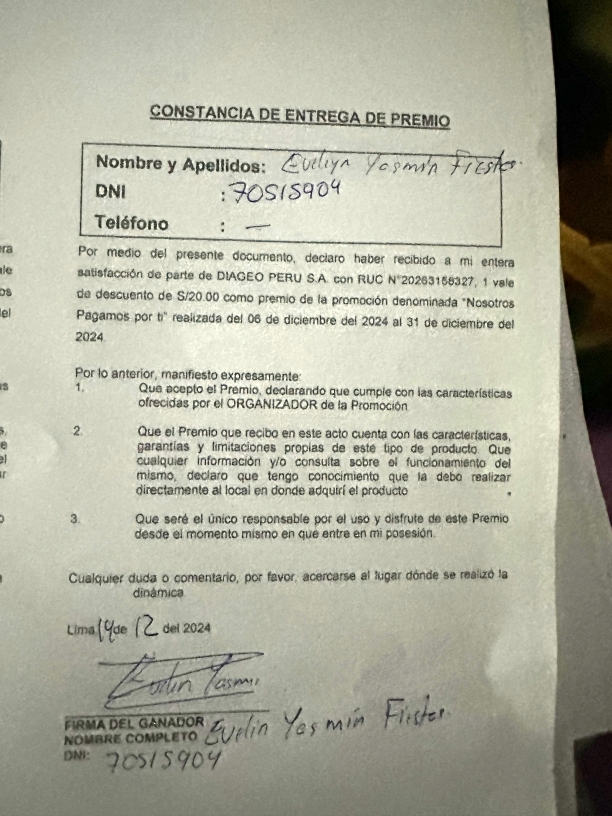 CONSTANCIA DE ENTREGA DE PREMIO
Nombre y Apellidos: Eveliyn Yasmín Fiester.
DNI : 70515904
Teléfono : —
Por medio del presente documento, declaro haber recibido a mi entera
satisfacción de parte de DIAGEO PERU S.A. con RUC N°20263158327, 1 vale
de descuento de S/20.00 como premio de la promoción denominada "Nosotros
Pagamos por ti" realizada del 06 de diciembre del 2024 al 31 de diciembre del
2024.
Por lo anterior, manifiesto expresamente:
1. Que acepto el Premio, declarando que cumple con las características
ofrecidas por el ORGANIZADOR de la Promoción
2. Que el Premio que recibo en este acto cuenta con las características,
garantías y limitaciones propias de este tipo de producto. Que
cualquier información y/o consulta sobre el funcionamiento del
mismo, declaro que tengo conocimiento que la debo realizar
directamente al local en donde adquirí el producto
3. Que seré el único responsable por el uso y disfrute de este Premio
desde el momento mismo en que entre en mi posesión.
Cualquier duda o comentario, por favor, acercarse al lugar dónde se realizó la
dinámica
Lima 14 de 12 del 2024
Evelin Yasmi
FIRMA DEL GANADOR
NOMBRE COMPLETO Evelin Yasmín Fiester.
DNI: 70515904